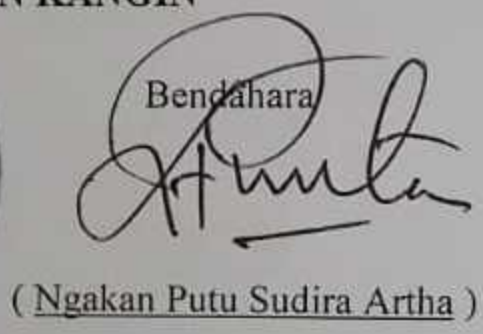 KANGIN
Bendahara
( Ngakan Putu Sudira Artha )